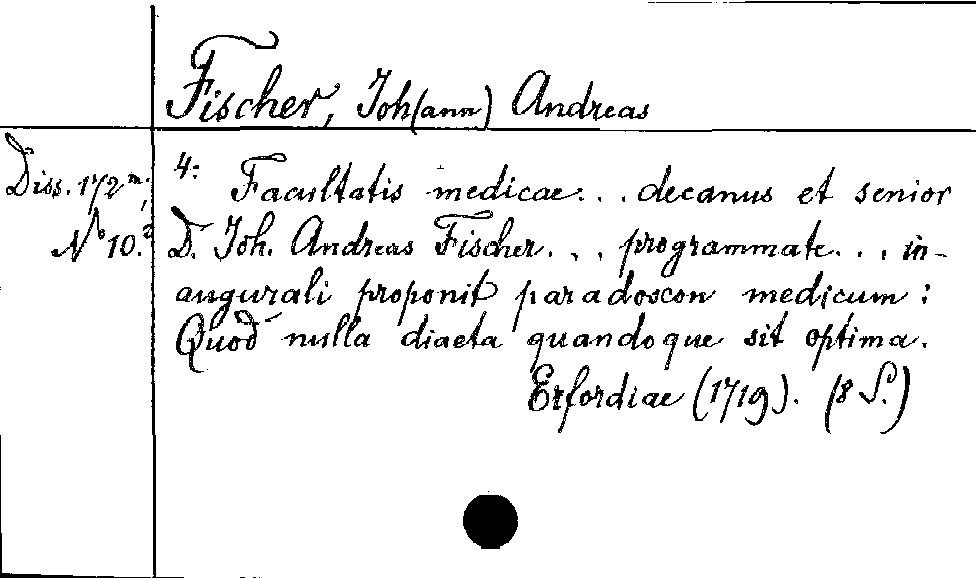 Fischer, Joh(ann) Andreas
Diss. 172 m;
No 10.2
4: Facultatis medicae... decanus et senior
D. Joh. Andreas Fischer... programmate... in-
augurali proponit paradoxon medicum:
Quod nulla diaeta quandoque sit optima.
Erfordiae (1719). (8 S.)